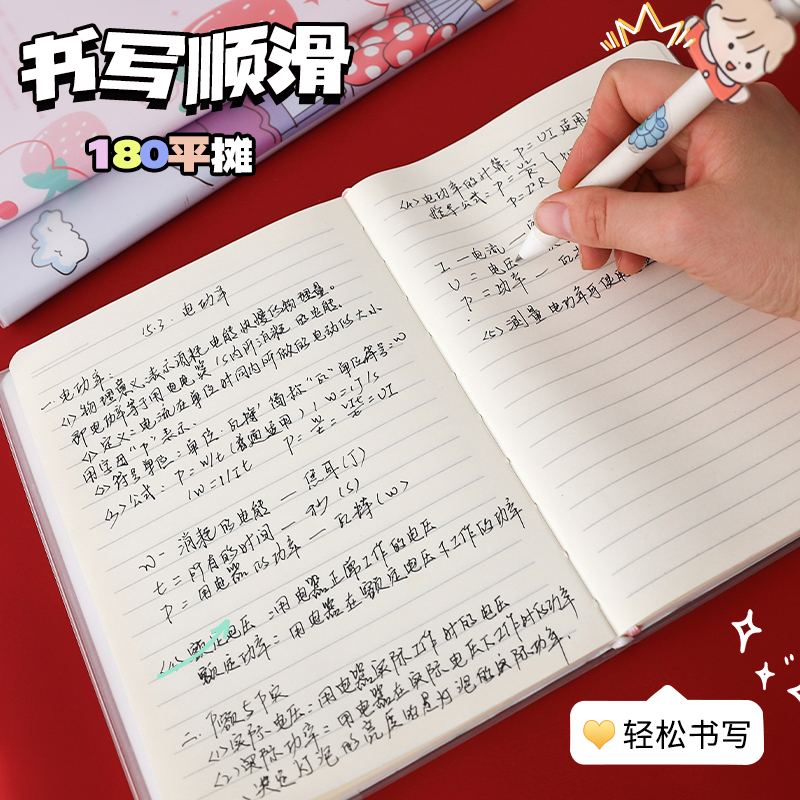 书写顺滑
180平摊
15.3. 电功率
一.电功率:
<1>物理意义:表示消耗电能快慢的物理量。
即电功率等于用电器1s内所消耗的电能.
<2>定义:电流在单位时间内所做的电功的大小
用字母"P"表示.
<3>符号单位:单位:瓦特 简称"瓦"单位符号=w
公式:P=W/t(普遍适用) 1w=1J/s
W- 消耗的电能 — 焦耳(J)
t=所有的时间 — 秒(s)
P=用电器的功率 — 瓦特(w)
额定电压:用电器正常工作的电压
额定功率:用电器在额定电压下工作的功率
二.P额与P实
<1>实际电压:用电器实际工作时的电压
<2>实际功率:用电器在实际电压下工作时的功率
灯泡的亮度由是灯泡的实际功率.
<4>电功率的计算:P=UI 适用
P=I²R
I — 电流 —
U = 电压
P = 功率 — 瓦
<5>测量电功率
轻松书写